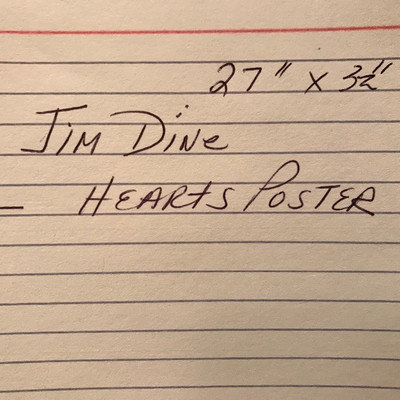 27" x 32"
Jim Dine
– HEARTS POSTER